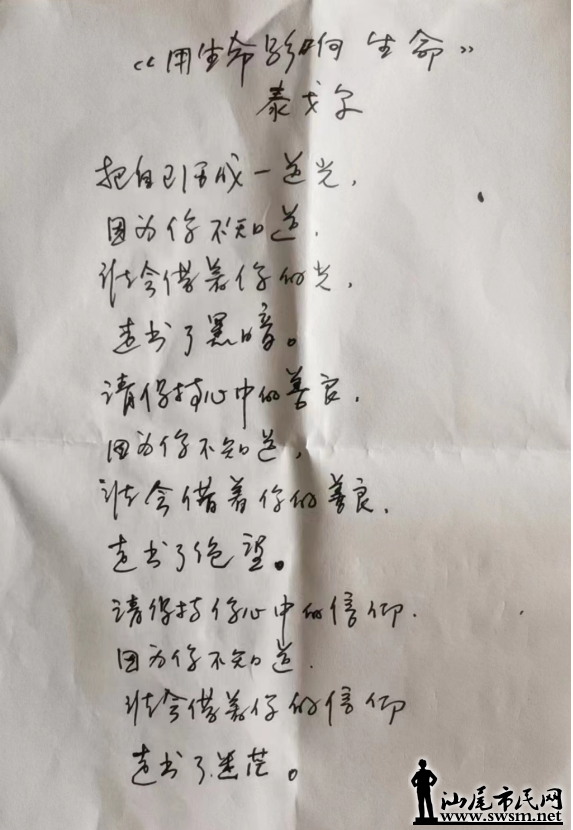 《用生命影响生命》
泰戈尔
把自己活成一道光，
因为你不知道，
谁会借着你的光，
走出了黑暗。
请保持心中的善良，
因为你不知道，
谁会借着你的善良，
走出了绝望。
请保持你心中的信仰，
因为你不知道，
谁会借着你的信仰
走出了迷茫。
汕尾市民网
www.swsm.net